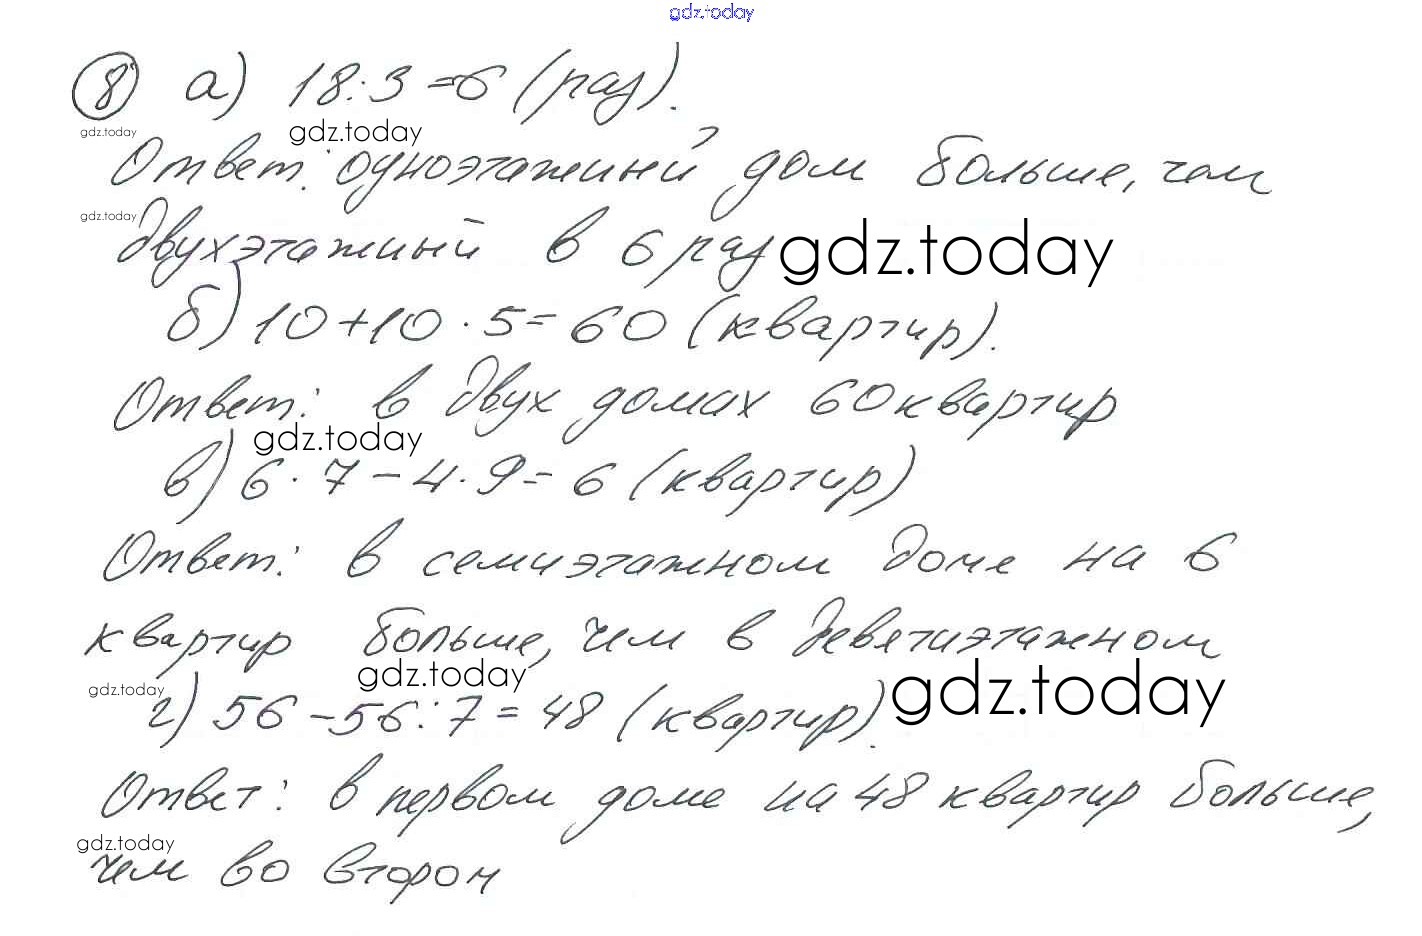 gdz.today
8 а) 18:3=6 (раз).
gdz.today gdz.today
Ответ: одноэтажный дом больше, чем
gdz.today
двухэтажный в 6 раз gdz.today
б) 10+10·5=60 (квартир).
Ответ: в двух домах 60 квартир
gdz.today
в) 6·7-4·9=6 (квартир)
Ответ: в семиэтажном доме на 6
квартир больше, чем в девятиэтажном
gdz.today gdz.today gdz.today
г) 56-56:7=48 (квартир).
Ответ: в первом доме на 48 квартир больше,
gdz.today
чем во втором